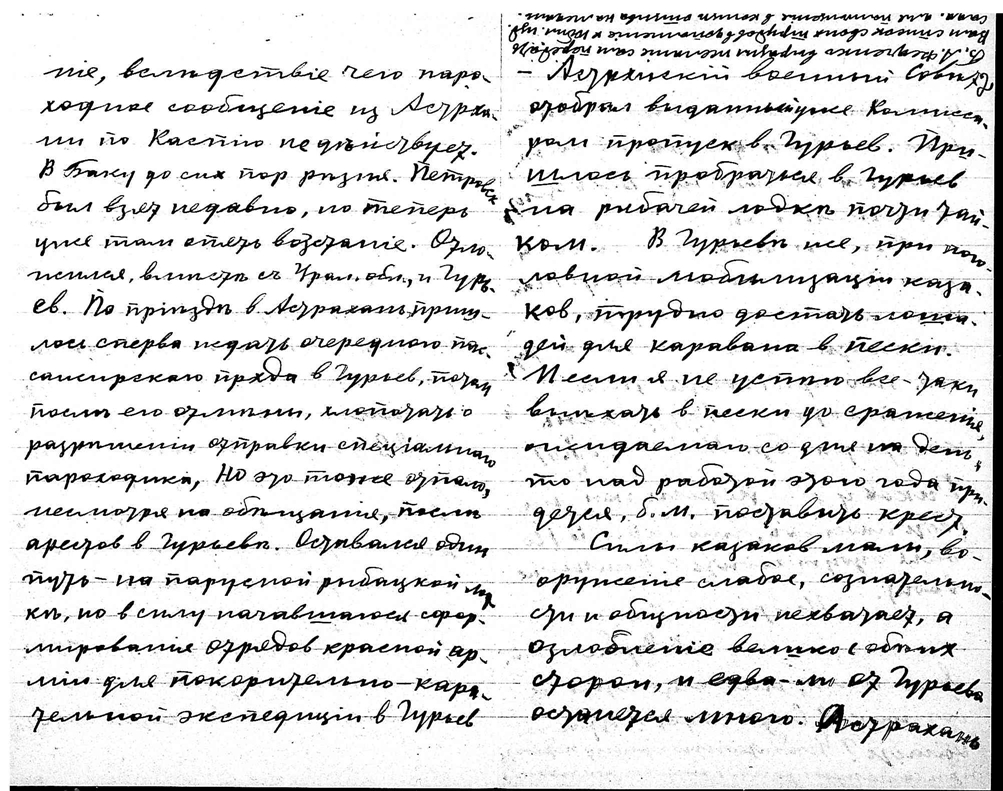 ніе, вслѣдствіе чего паро-
ходное сообщеніе из Астраха-
ни по Каспію не дѣйствует.
В Баку до сих пор рѣзня. Петровск
был взят недавно, но теперь
уже там опять возстаніе. Отло-
жился, вмѣстѣ съ Урал. обл., и Гурь-
ев. По пріѣздѣ в Астрахань приш-
лось сперва ждать очереднаго пас-
сажирскаго прхда в Гурьев, потом
послѣ его отмѣны, хлопотать о
разрѣшеніи отправки спеціальнаго
пароходика, Но это тоже отпало,
несмотря на обѣщанія, послѣ
арестов в Гурьевѣ. Оставался один
путь – на парусной рыбацкой лод
кѣ, но в силу начавшагося сфор-
мированія отрядов красной ар-
міи для покорительно-кара-
тельной экспедиціи в Гурьев
Б. А. Федченко выразил желаніе сам передать
Вам список своих трудов
– Астрахнскій военный Совѣт
отобрал выданный уже Комисса-
ром пропуск в Гурьев. При-
шлось пробраться в Гурьев
на рыбачей лодкѣ почти тай-
ком. В Гурьевѣ же, при пого-
ловной мобилизаціи каза-
ков, трудно достать лоша-
дей для каравана в пески.
И если я не успѣю все-таки
выѣхать в пески до сраженія,
ожидаемаго со дня на день,
то над работой этого года при-
дется, б. м. поставить крест.
Силы казаков малы, во-
оруженіе слабое, сознательно-
сти и общности нехватает, а
озлобленіе велико с обѣих
сторон, и едва-ли от Гурьева
останется много. Астрахань